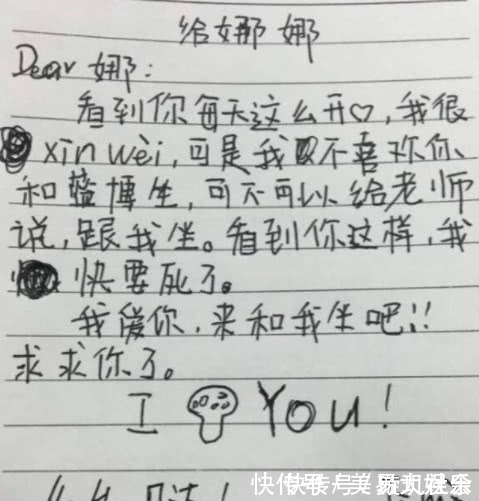 给娜娜
Dear 娜:
看到你每天这么开♡,我很
xin wei,可是我又不喜欢你
和 博生,可不可以给老师
说,跟我坐。看到你这样,我
快要死了。
我爱你,来和我坐吧!!
求求你了。
I You!
快传号/